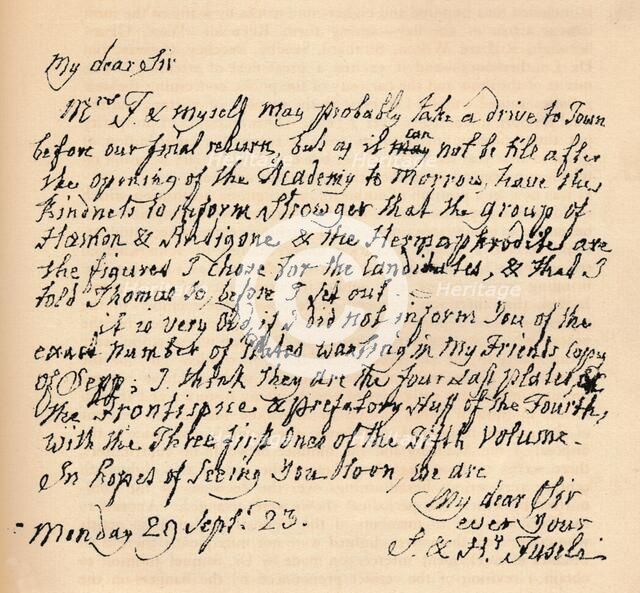 My dear Sir
Mrs F. & myself may probably take a drive to Town
before our final return, but as it can not be till after
the opening of the Academy to Morrow, have the
Kindness to inform Strowger that the group of
Hæmon & Antigone & the Hermaphrodite are
the figures I chose for the Candidates, & that I
told Thomas so, before I set out.
it is very Odd, if I did not inform You of the
exact number of Plates wanting in My Friends Copy
of Sepp; I think they are the four Last plates,
the Frontispice & prefatory stuff of the Fourth,
with the Three first ones of the Fifth Volume.
In hopes of Seeing You Soon, we are
My dear Sir
ever Yours
S. & Hy Fuseli
Monday 29 Sept. 23.
Heritage
Heritage
Heritage
Heritage